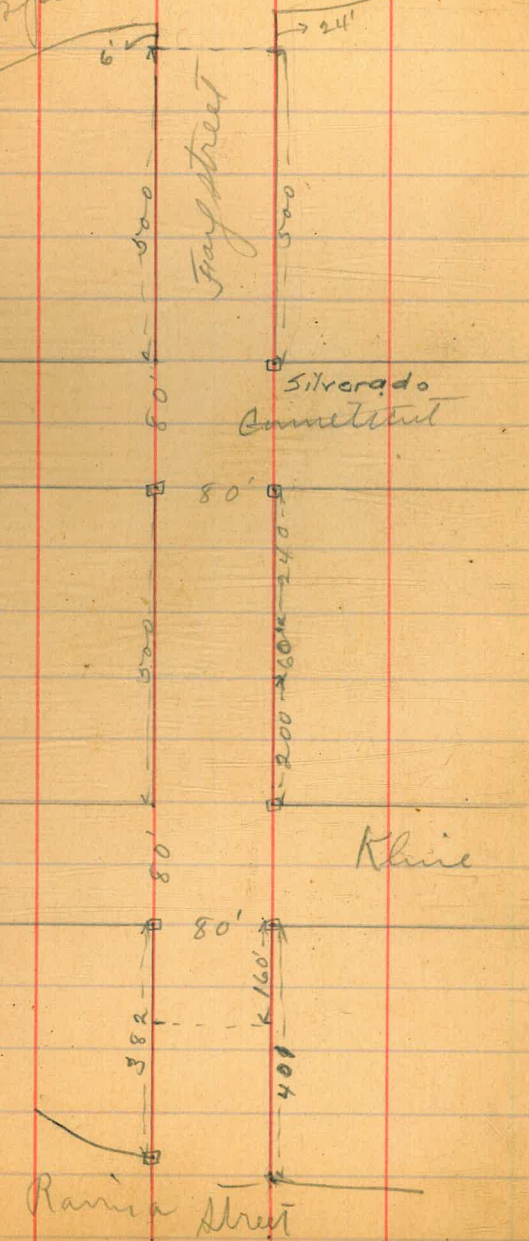 6'
24'
500
Fay street
500
Silverado
80'
80'
240
500
60
200
80'
Kline
80'
160'
382
401
Ravina Street